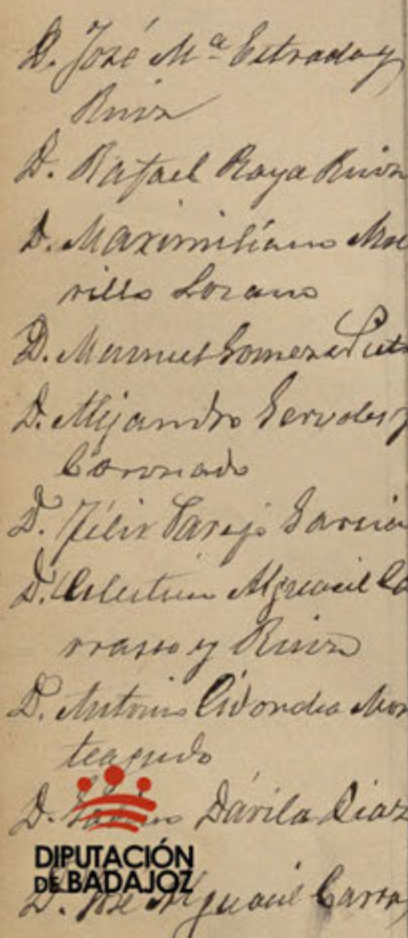 D. José Mª Estrada y
Ruiz
D. Rafael Raya Ruiz
D. Maximiliano Mo
rillo Lozano
D. Manuel Gomez
D. Alejandro y
Coronado
D. Félix Parejo García
D. Celestino Alguacil Ca
rrasco y Ruiz
D. Antonio Mon
teagudo
D. Dávila Diaz
DIPUTACIÓN
DE BADAJOZ
D. José Alguacil Carra